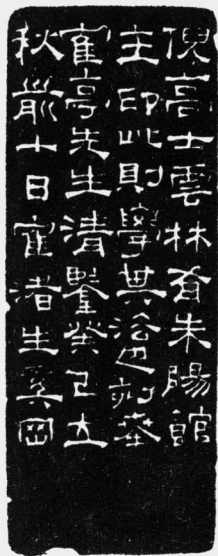 倪高士雲林有朱陽館
主印此則學其法也刻奉
寉亭先生清鑒癸巳立
秋前十日寉渚生奚岡